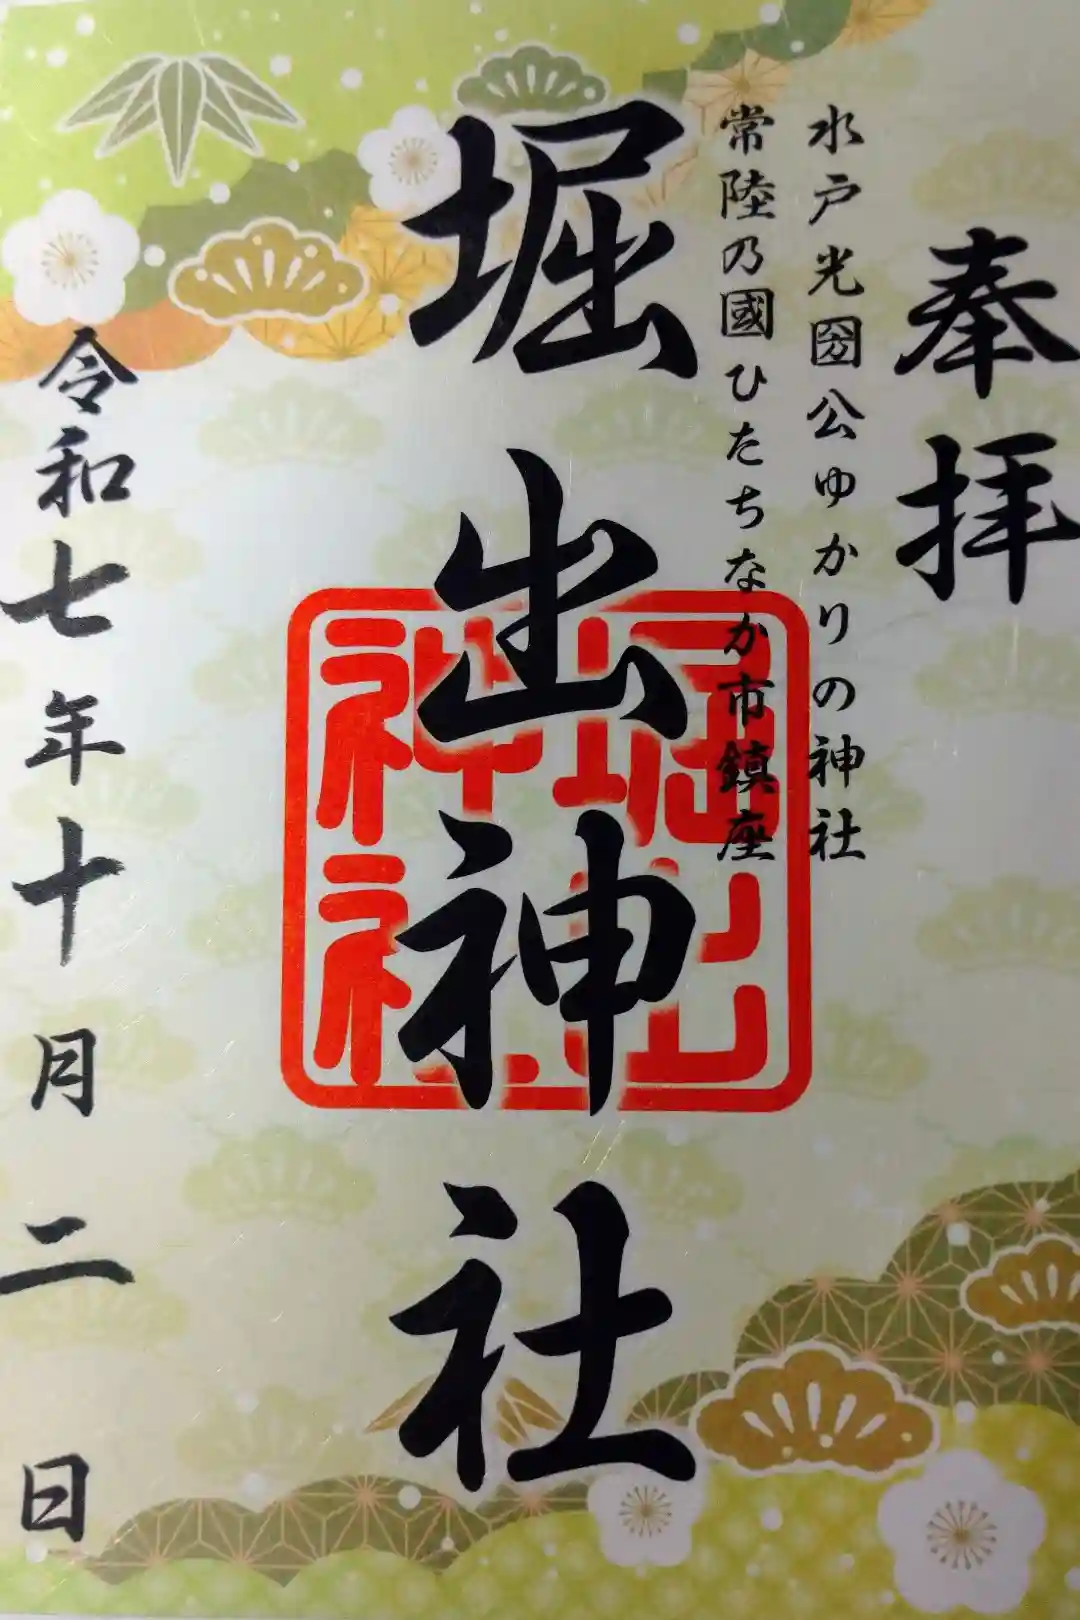 奉拝
水戸光圀公ゆかりの神社
常陸乃國ひたちなか市鎮座
堀出神社
堀出
神社
令和七年十月二日